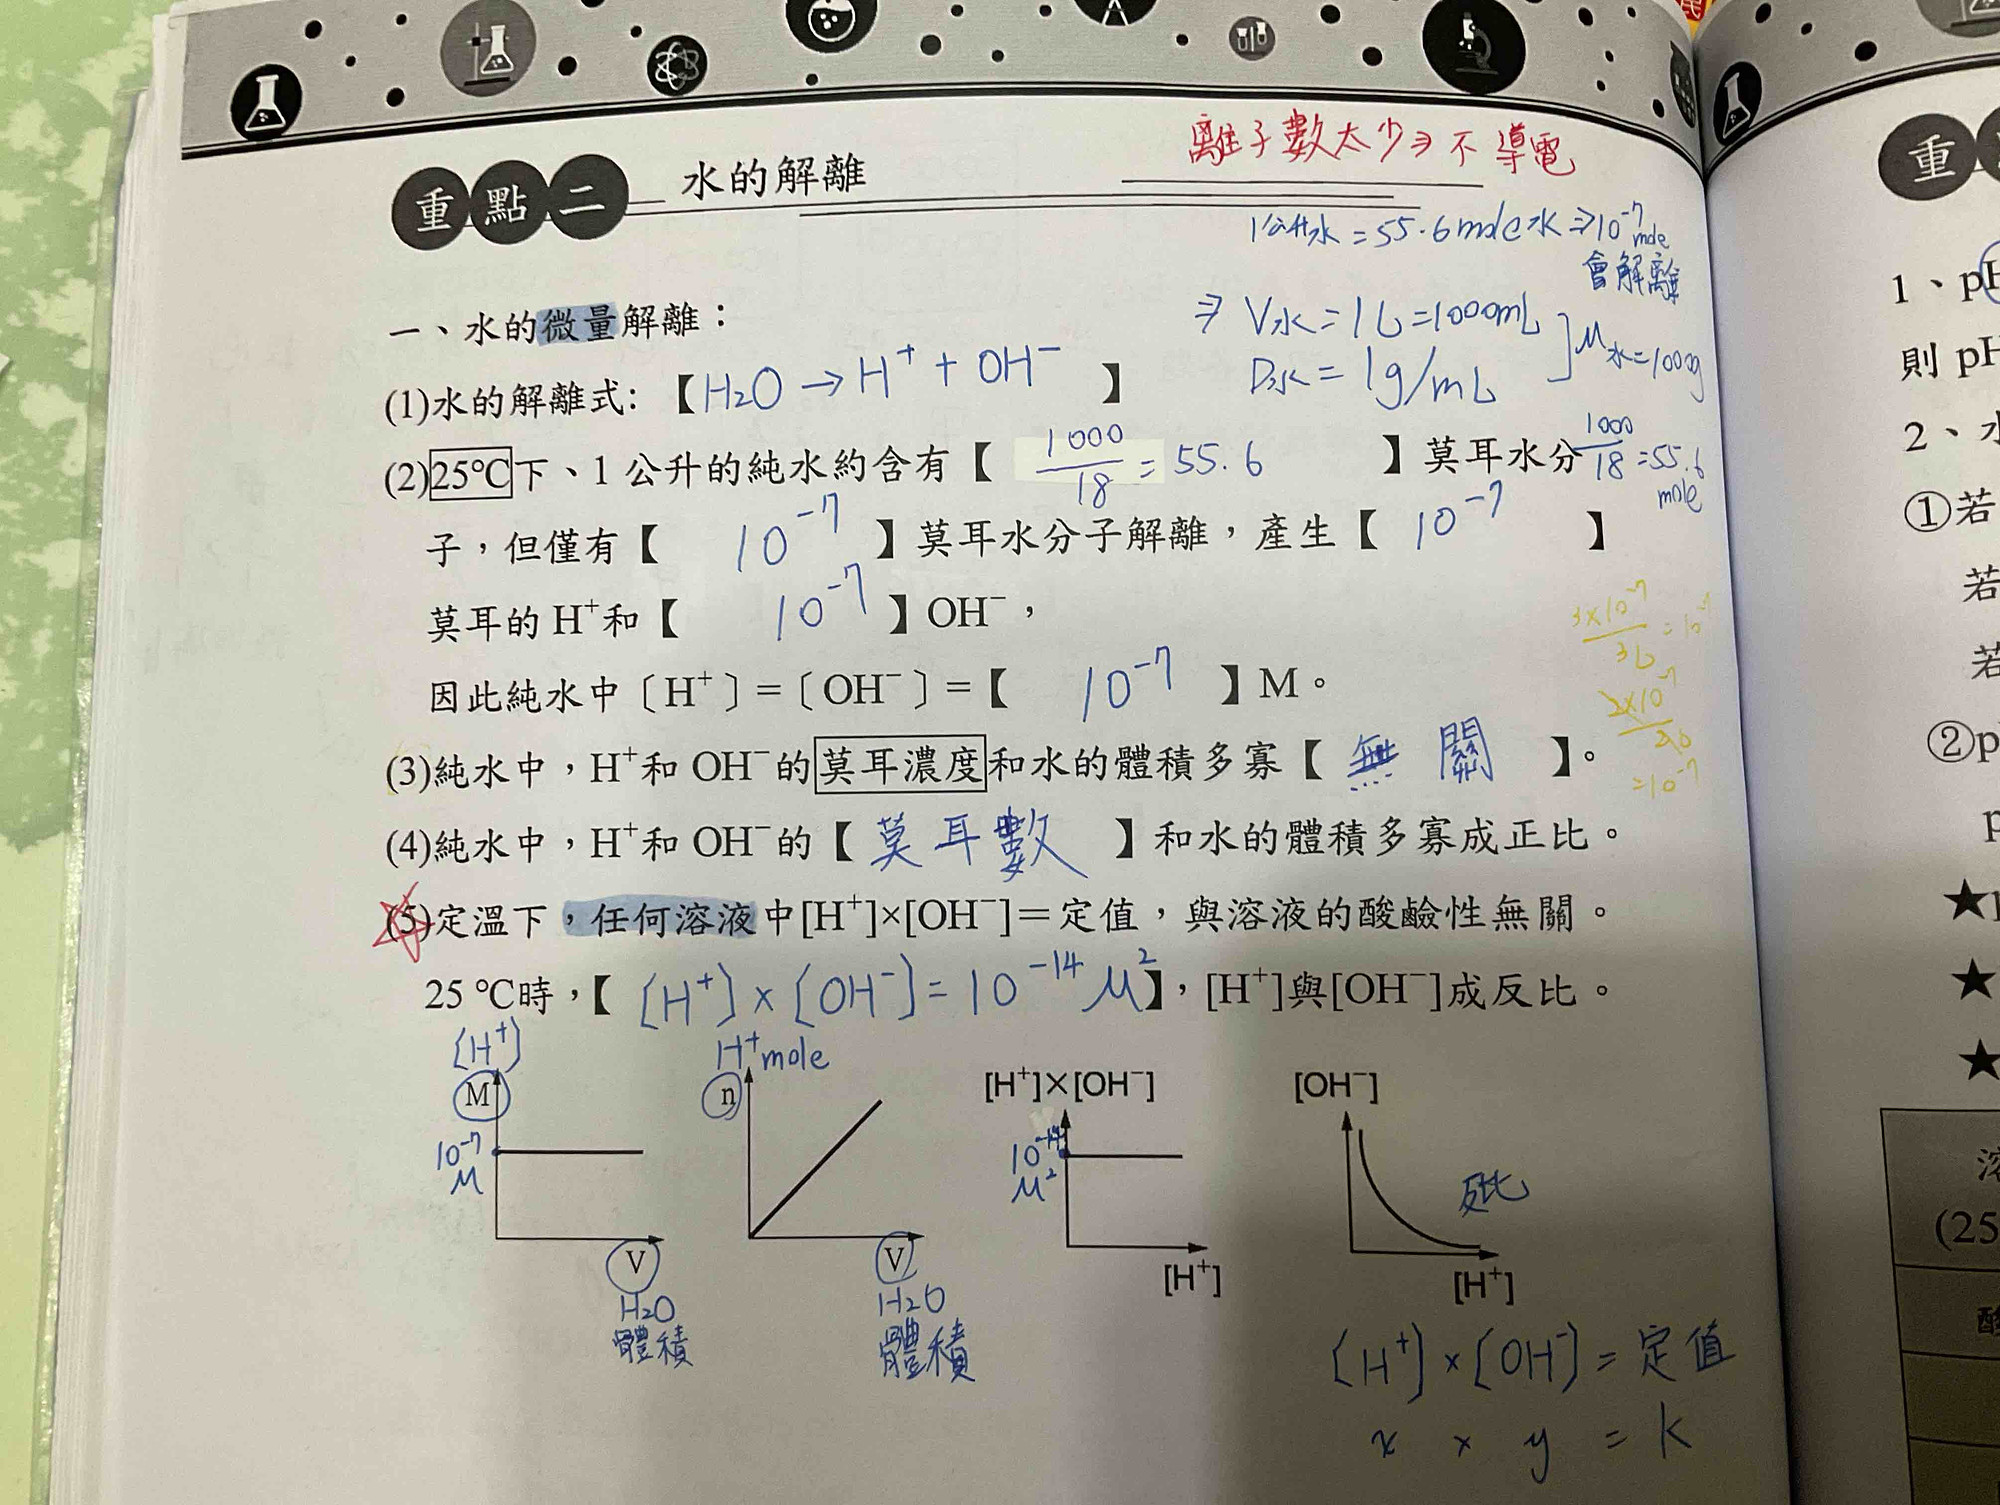 重點二 水的解離
離子數太少⇒不導電
1公升水=55.6mole水⇒10⁻⁷mole
會解離
⇒ V水=1L=1000mL
D水=1g/mL ]M水=1000g
1000/18=55.6
mole
一、水的微量解離：
(1)水的解離式:【H₂O→H⁺+OH⁻】
(2)25℃下、1公升的純水約含有【1000/18=55.6】莫耳水分
子，但僅有【10⁻⁷】莫耳水分子解離，產生【10⁻⁷】
莫耳的H⁺和【10⁻⁷】OH⁻，
因此純水中〔H⁺〕=〔OH⁻〕=【10⁻⁷】M。
3×10⁻⁷/3L=10⁻⁷
2×10⁻⁷
=10⁻⁷
(3)純水中，H⁺和OH⁻的莫耳濃度和水的體積多寡【無關】。
(4)純水中，H⁺和OH⁻的【莫耳數】和水的體積多寡成正比。
(5)定溫下，任何溶液中[H⁺]×[OH⁻]=定值，與溶液的酸鹼性無關。
25℃時，【[H⁺]×[OH⁻]=10⁻¹⁴M²】，[H⁺]與[OH⁻]成反比。
[H⁺]
M
10⁻⁷
M
V
H₂O
體積
H⁺mole
n
V
H₂O
體積
[H⁺]×[OH⁻]
10⁻¹⁴
M²
[H⁺]
[OH⁻]
反比
[H⁺]
[H⁺]×[OH⁻]=定值
x × y = k
重
1、pH
則pH
2、水
①若
若
若
②p
p
★
★
★
溶
(25
酸